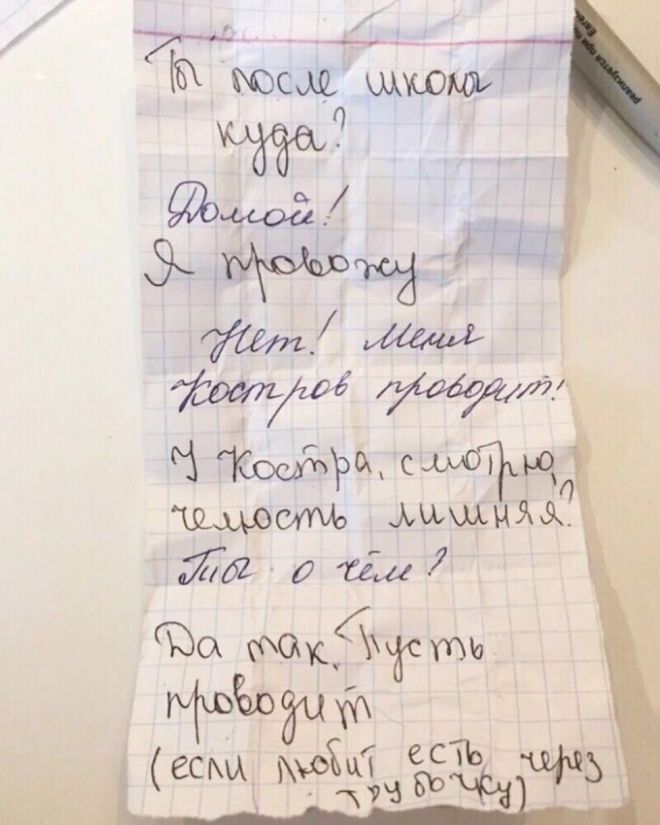 Ты после школы
куда?
Домой!
Я провожу
Нет! Меня
Костров проводит!
У Костра, смотрю,
челюсть лишняя?
Ты о чём?
Да так. Пусть
проводит
(если любит есть через
трубочку)
реализуется при